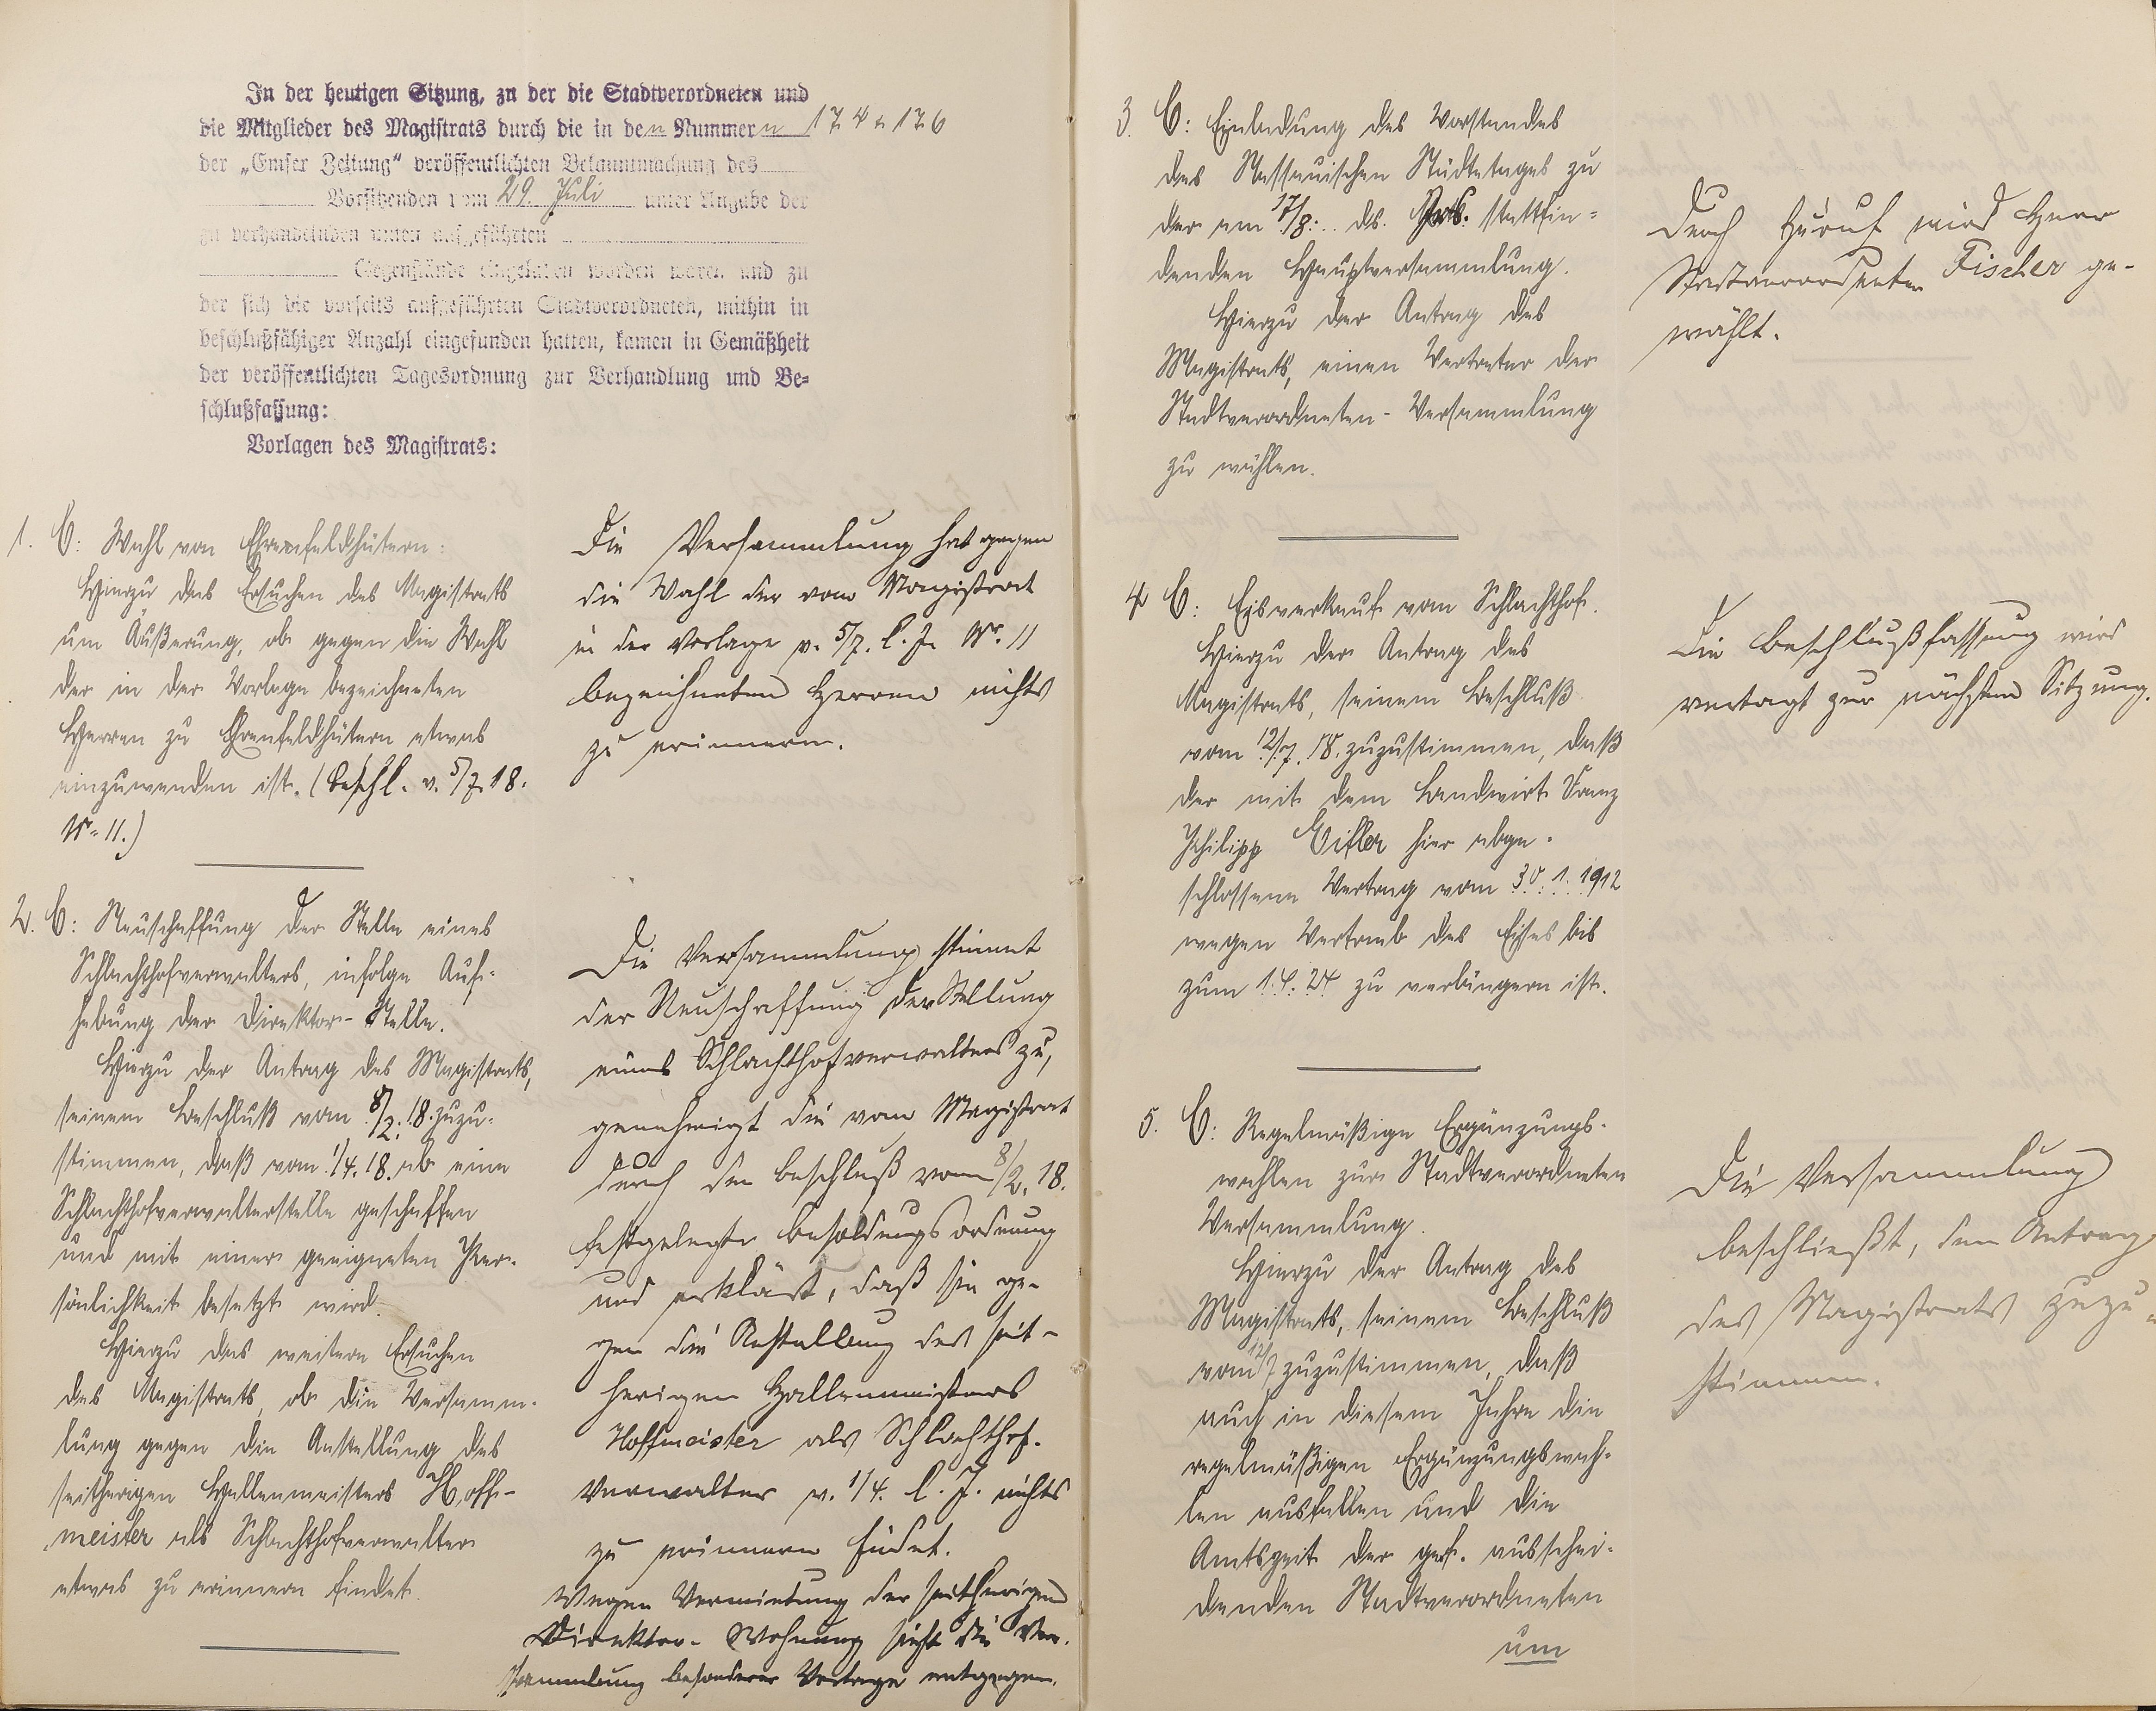 In der heutigen Sitzung, zu der die Stadtverordneten und
die Mitglieder des Magistrats durch die in den Nummern 174 u. 176
der „Emser Zeitung“ veröffentlichten Bekanntmachung des
Vorsitzenden vom 29. Juli unter Angabe der
zu verhandelnden unten aufgeführten
Gegenstände eingeladen worden waren und zu
der sich die vorseits aufgeführten Stadtverordneten, mithin in
beschlußfähiger Anzahl eingefunden hatten, kamen in Gemäßheit
der veröffentlichten Tagesordnung zur Verhandlung und Be=
schlußfassung:
Vorlagen des Magistrats:
1. C: Wahl von Ehrenfeldhütern:
Hierzu das Ersuchen des Magistrats
um Äußerung, ob gegen die Wahl
der in der Vorlage bezeichneten
Herren zu Ehrenfeldhütern etwas
einzuwenden ist. (Beschl. v. 5/7. 18.
Nr. 11.)
Die Versammlung hat gegen
die Wahl der vom Magistrat
in der Vorlage v. 5/7. l. J. Nr. 11
bezeichneten Herren nichts
zu erinnern.
2. C: Neuschaffung der Stelle eines
Schlachthofverwalters, infolge Auf-
hebung der Direktor-Stelle.
Hierzu der Antrag des Magistrats,
seinem Beschluß vom 8/2. 18. zuzu-
stimmen, daß vom 1/4. 18. ab eine
Schlachthofverwalterstelle geschaffen
und mit einer geeigneten Per-
sönlichkeit besetzt wird.
Hierzu das weitere Ersuchen
des Magistrats, ob die Versamm-
lung gegen die Anstellung des
seitherigen Hallenmeisters Hoff-
meister als Schlachthofverwalter
etwas zu erinnern findet.
Die Versammlung stimmt
der Neuschaffung der Stellung
eines Schlachthofverwalters zu,
genehmigt die vom Magistrat
durch den Beschluß vom 8/2. 18.
festgelegte Besoldungsordnung
und erklärt, daß sie ge-
gen die Anstellung des seit-
herigen Hallenmeisters
Hoffmeister als Schlachthof-
verwalter v. 1/4. l. J. nichts
zu erinnern findet.
Wegen Vermietung der seitherigen
Direktor-Wohnung sieht die Ver-
sammlung besonderer Vorlage entgegen.
3. C: Einladung des Vorstandes
des Nassauischen Städtetages zu
der am 17/8. ds. Jrs. stattfin=
denden Hauptversammlung.
Hierzu der Antrag des
Magistrats, einen Vertreter der
Stadtverordneten-Versammlung
zu wählen.
Durch Zuruf wird Herr
Stadtverordneter Fischer ge-
wählt.
4 C: Eisverkauf vom Schlachthof.
Hierzu der Antrag des
Magistrats, seinem Beschluß
vom 12/7. 18. zuzustimmen, daß
der mit dem Landwirt Franz
Philipp hier abge-
schlossene Vertrag vom 30. 1. 1912
wegen Vertrieb des Eises bis
zum 1. 4. 24 zu verlängern ist.
Die Beschlußfassung wird
vertagt zur nächsten Sitzung.
5. C: Regelmäßige Ergänzungs-
wahlen zur Stadtverordneten
Versammlung.
Hierzu der Antrag des
Magistrats, seinem Beschluß
vom 12/7 zuzustimmen, daß
auch in diesem Jahre die
regelmäßigen Ergänzungswah-
len ausfallen und die
Amtszeit der ausschei-
denden Stadtverordneten
um
Die Versammlung
beschließt, dem Antrag
des Magistrats zuzu-
stimmen.